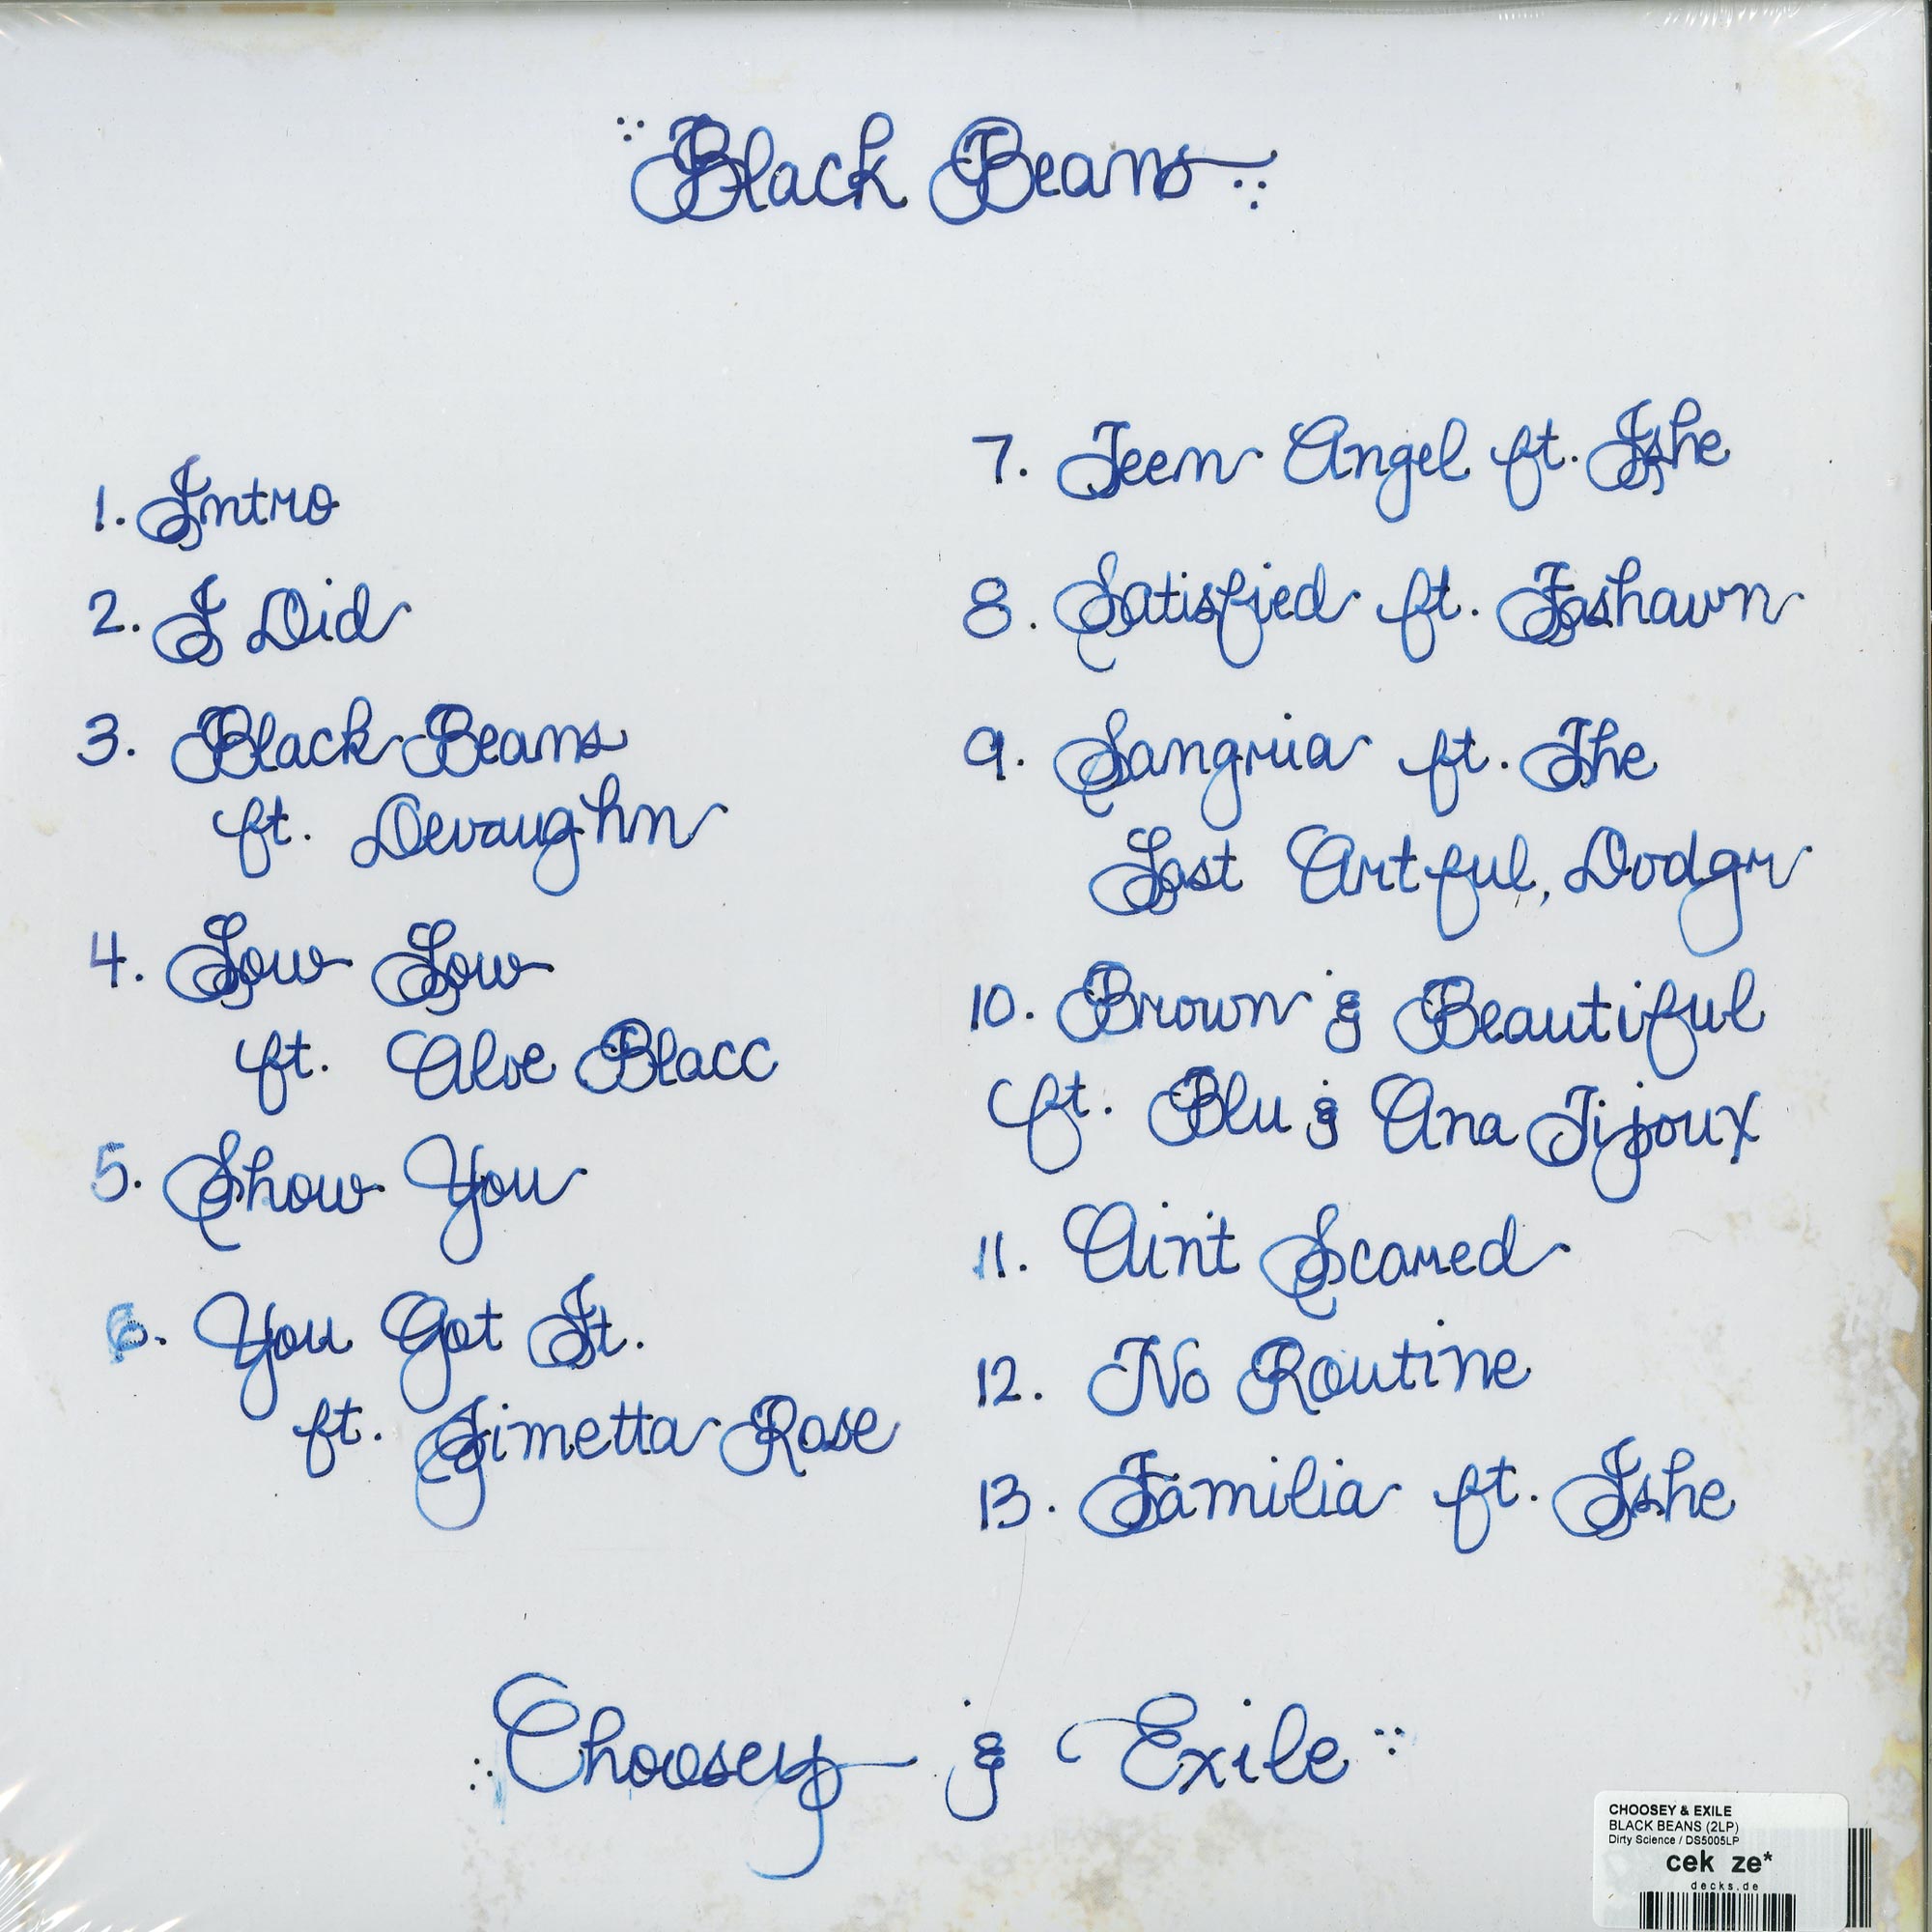 Black Beans
1. Intro
2. I Did
3. Black Beans
ft. Devaughn
4. Low Low
ft. Aloe Blacc
5. Show You
6. You Got It.
ft. Jimetta Rose
7. Teen Angel ft. Ishe
8. Satisfied ft. Fashawn
9. Sangria ft. The
Last Artful, Dodgr
10. Brown & Beautiful
ft. Blu & Ana Tijoux
11. Ain't Scared
12. No Routine
13. Familia ft. Ishe
Choosey & Exile
CHOOSEY & EXILE
BLACK BEANS (2LP)
Dirty Science / DS5005LP
cek ze*
decks.de